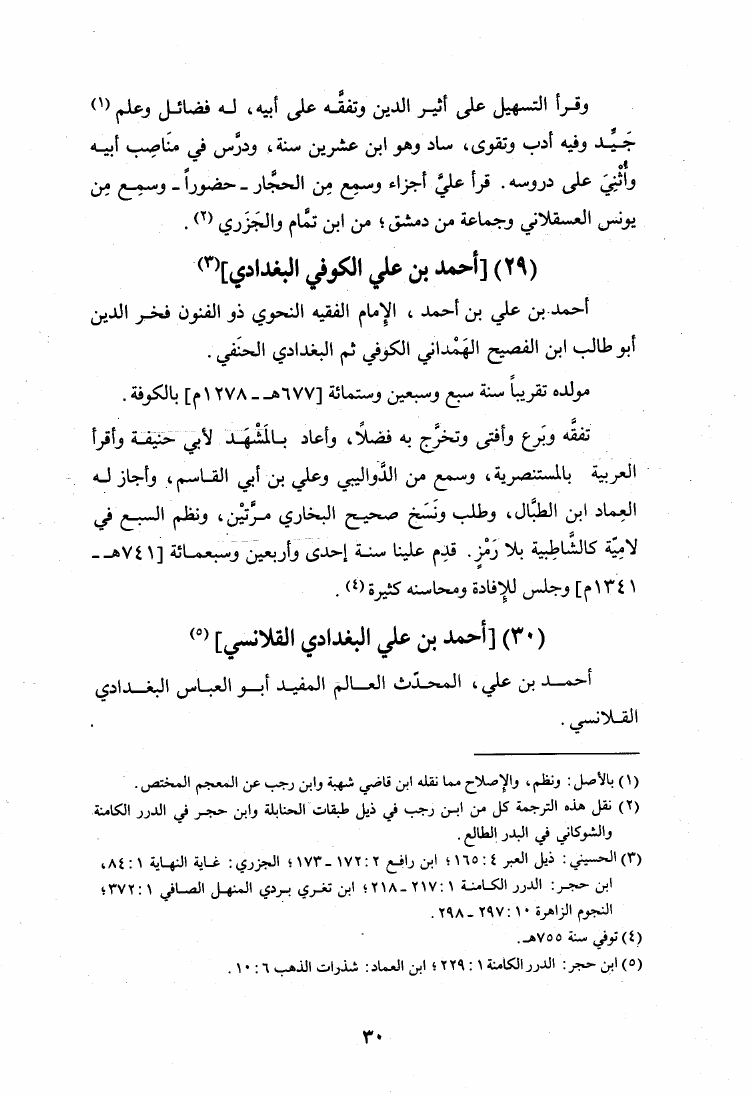 وقرأ التسهيل على أثير الدين وتفقَّه على أبيه، له فضائل وعلم (١)
جَيِّد وفيه أدب وتقوى، ساد وهو ابن عشرين سنة، ودرَّس في مناصِب أبيه
وأُثْنِيَ على دروسه. قرأ عليَّ أجزاء وسمِع مِن الحجَّار - حضوراً - وسمِع مِن
يونس العسقلاني وجماعة من دمشق؛ من ابن تمَّام والجَزَري (٢).
(٢٩) [أحمد بن علي الكوفي البغدادي](٣)
أحمد بن علي بن أحمد، الإمام الفقيه النحوي ذو الفنون فخر الدين
أبو طالب ابن الفصيح الهَمْداني الكوفي ثم البغدادي الحنَفي.
مولده تقريباً سنة سبع وسبعين وستمائة [٦٧٧هـ - ١٢٧٨م] بالكوفة.
تفقَّه وبَرع وأفتى وتخرَّج به فضلًا، وأعاد بالمَشْهَد لأبي حنيفة وأقرأ
العربية بالمستنصرية، وسمع من الدَّواليبي وعلي بن أبي القاسم، وأجاز له
العِماد ابن الطبَّال، وطلب ونَسَخ صحيح البخاري مرَّتيْن، ونظم السبع في
لاميّة كالشَّاطِبية بلا رَمْزٍ. قدِم علينا سنة إحدى وأربعين وسبعمائة [٧٤١هـ -
١٣٤١م] وجلس للإفادة ومحاسنه كثيرة (٤).
(٣٠) [أحمد بن علي البغدادي القلانسي] (٥)
أحمد بن علي، المحدّث العالم المفيد أبو العباس البغدادي
القلانسي.
(١) بالأصل: ونظم، والإصلاح مما نقله ابن قاضي شهبة وابن رجب عن المعجم المختص.
(٢) نقل هذه الترجمة كل من ابن رجب في ذيل طبقات الحنابلة وابن حجر في الدرر الكامنة
والشوكاني في البدر الطالع.
(٣) الحسيني: ذيل العبر ٤: ١٦٥؛ ابن رافع ٢: ١٧٢ - ١٧٣؛ الجزري: غاية النهاية ١: ٨٤،
ابن حجر: الدرر الكامنة ١: ٢١٧ - ٢١٨؛ ابن تغري بردي المنهل الصافي ١: ٣٧٢؛
النجوم الزاهرة ١٠: ٢٩٧ - ٢٩٨.
(٤) توفي سنة ٧٥٥هـ.
(٥) ابن حجر: الدرر الكامنة ١: ٢٢٩؛ ابن العماد: شذرات الذهب ٦: ١٠.
٣٠